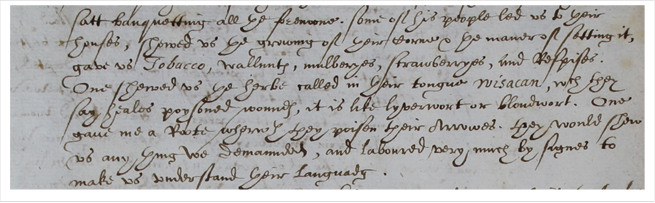 satt banquetting all the forenoone. some of his people led us to their
houses, shewed us the growing of their Corne & the maner of setting it,
gave us Tobacco, wallnutts, mulberyes, strawberryes, and Respises.
One shewed us the herbe called in their tongue wisacan, wch they
say heales poysoned woundes, it is like lyverwort or bloudwort. One
gave me a Roote wherewith they poison their Arrowes. they would shew
us any thing we demaunded, and laboured very much by signes to
make us understand their Languadg.